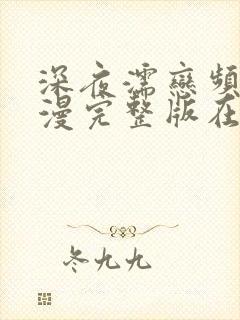 深夜濡戀頻
漫完整版在
冬九九